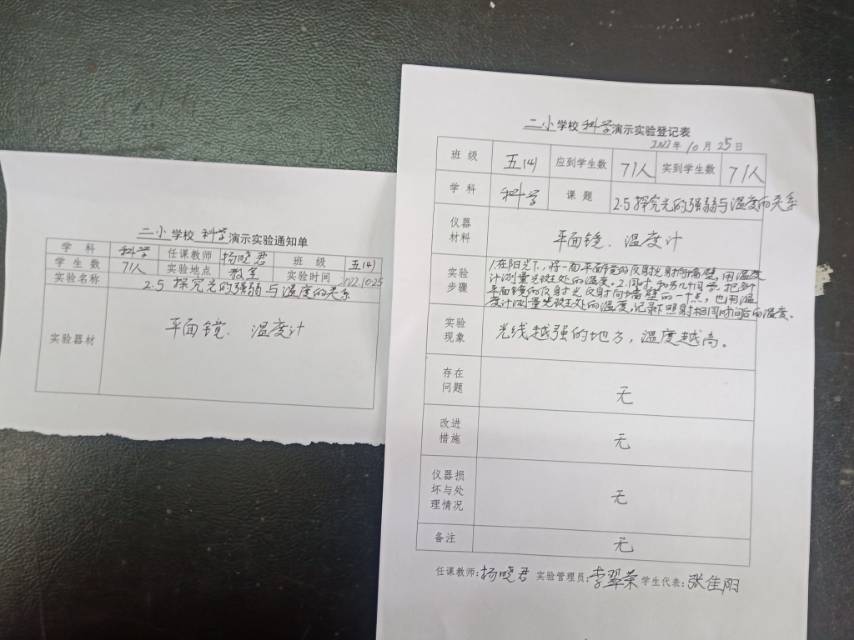 二小学校科学演示实验通知单
学科 科学 任课教师 杨晓君 班级 五(4)
学生数 71人 实验地点 教室 实验时间 2022.10.25
实验名称 2.5 探究光的强弱与温度的关系
实验器材 平面镜、温度计
二小学校科学演示实验登记表
2022年10月25日
班级 五(4) 应到学生数 71人 实到学生数 71人
学科 科学 课题 2.5 探究光的强弱与温度的关系
仪器
材料
平面镜、温度计
实验
步骤
1.在阳光下,将一面平面镜的反射光射向墙壁,用温度
计测量光斑处的温度。2.同时,和另几个同学,把多
平面镜的反射光反射向墙壁的一点,也用温
度计测量光斑处的温度,记录照射相同时间后的温度。
实验
现象
光线越强的地方,温度越高。
存在
问题
无
改进
措施
无
仪器损
坏与处
理情况
无
备注 无
任课教师:杨晓君 实验管理员:李翠荣 学生代表:张佳阳